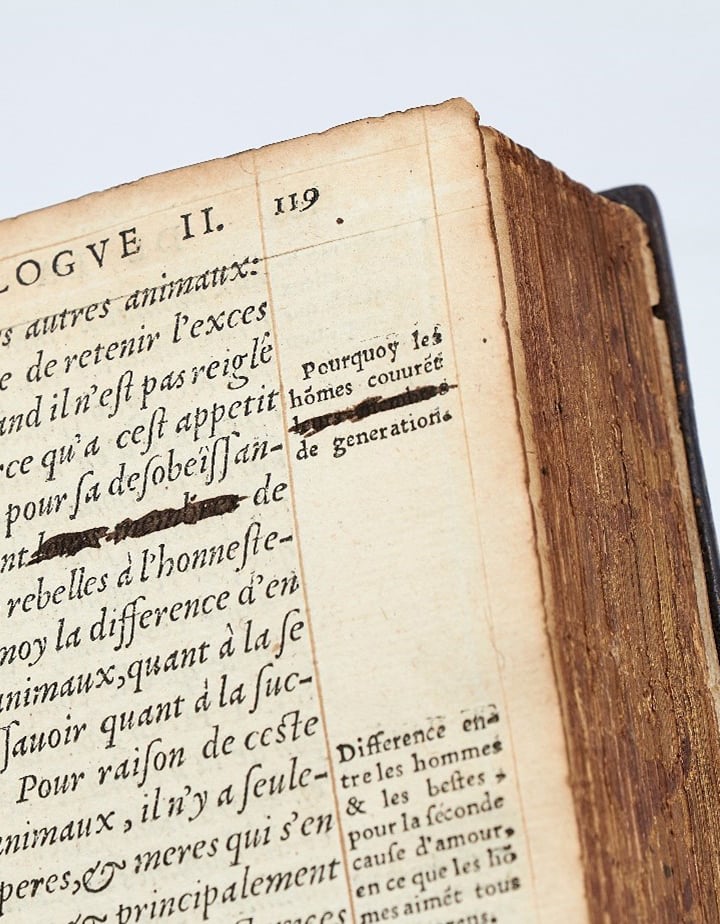 LOGVE II. 119
autres animaux:
de retenir l'exces
il n'eſt pas reiglé
qu'a ceſt appetit
pour ſa deſobeïſſan-
de
rebelles à l'honneſte-
la difference d'en
animaux, quant à la ſe
ſauoir quant à la ſuc-
Pour raiſon de ceſte
animaux, il n'y a ſeule-
peres, & meres qui s'en
principalement
Pourquoy les
hõmes couurẽt
leurs membres
de generation.
Difference en-
tre les hommes
& les beſtes,
pour la ſeconde
cauſe d'amour,
en ce que les hõ
mes aimẽt tous